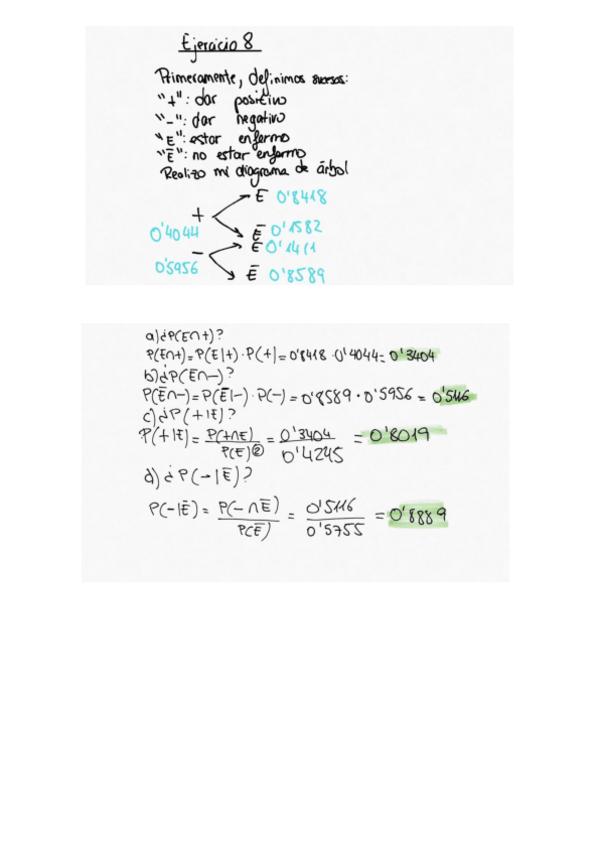 Ejercicio 8
Primeramente, definimos sucesos:
"+": dar positivo
"-": dar negativo
"E": estar enfermo
"Ē": no estar enfermo
Realizo mi diagrama de árbol
E 0'8418
+
0'4044
Ē 0'1582
E 0'1411
-
0'5956
Ē 0'8589
a) ¿P(E∩+)?
P(E∩+) = P(E|+) · P(+) = 0'8418 · 0'4044 = 0'3404
b) ¿P(Ē∩-)?
P(Ē∩-) = P(Ē|-) · P(-) = 0'8589 · 0'5956 = 0'5116
c) ¿P(+|E)?
P(+|E) = P(+∩E) / P(E)② = 0'3404 / 0'4245 = 0'8019
d) ¿P(-|Ē)?
P(-|Ē) = P(-∩Ē) / P(Ē) = 0'5116 / 0'5755 = 0'8889